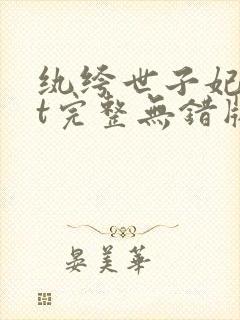 纨绔世子妃
t完整無錯版
晏美華